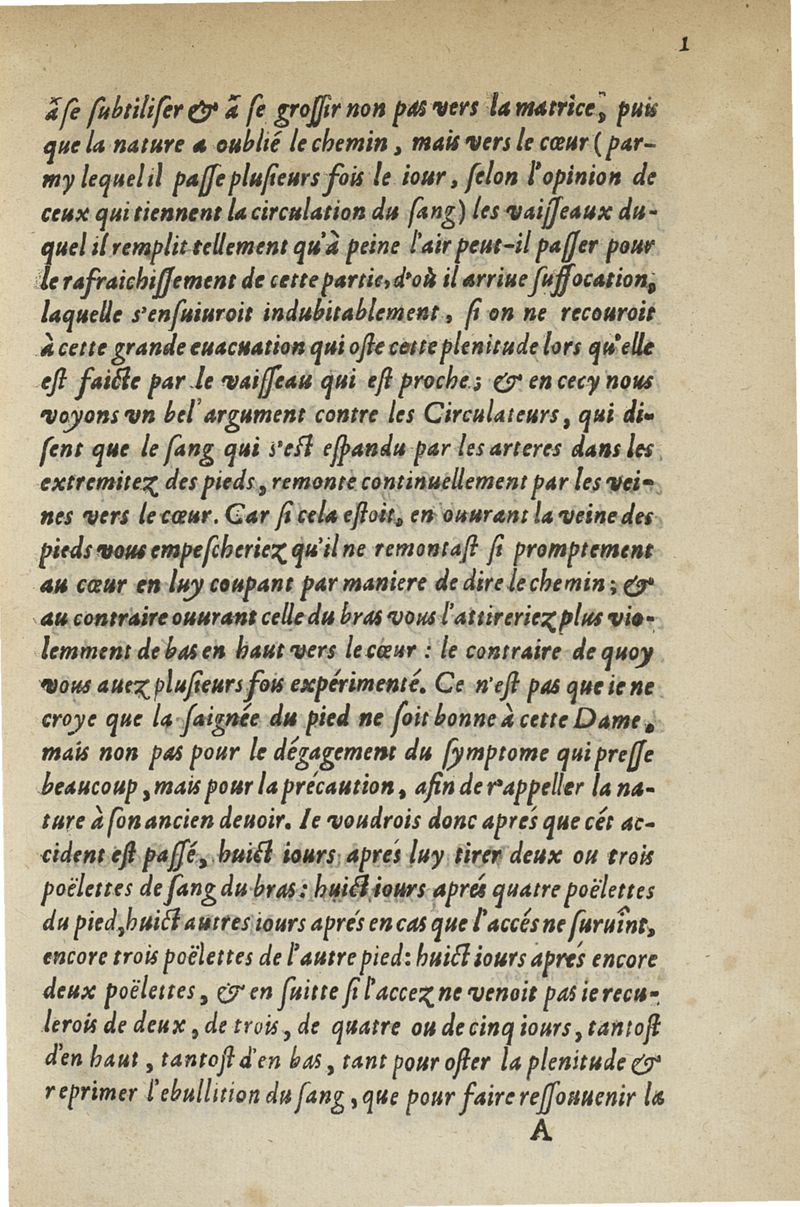 1
ã se ſubtiliſer & ã ſe groſſir non pas vers la matrice, puis
que la nature a oublié le chemin, mais vers le cœur (par-
my lequel il paſſe pluſieurs fois le iour, ſelon l'opinion de
ceux qui tiennent la circulation du ſang) les vaiſſeaux du-
quel il remplit tellement qu'à peine l'air peut-il paſſer pour
le rafraichiſſement de cette partie, d'où il arriue ſuffocation,
laquelle s'enſuiuroit indubitablement, ſi on ne recouroit
à cette grande euacuation qui oſte cette plenitude lors qu'elle
eſt faicte par le vaiſſeau qui eſt proche; & en cecy nous
voyons vn bel argument contre les Circulateurs, qui di-
ſent que le ſang qui s'eſt eſpandu par les arteres dans les
extremitez des pieds, remonte continuellement par les vei-
nes vers le cœur. Car ſi cela eſtoit, en ouurant la veine des
pieds vous empeſcheriez qu'il ne remontaſt ſi promptement
au cœur en luy coupant par maniere de dire le chemin; &
au contraire ouurant celle du bras vous l'attireriez plus vio-
lemment de bas en haut vers le cœur : le contraire de quoy
vous auez pluſieurs fois expérimenté. Ce n'eſt pas que ie ne
croye que la ſaignée du pied ne ſoit bonne à cette Dame,
mais non pas pour le dégagement du ſymptome qui preſſe
beaucoup, mais pour la précaution, afin de r'appeller la na-
ture à ſon ancien deuoir. Ie voudrois donc aprés que cét ac-
cident eſt paſſé, huict iours aprés luy tirer deux ou trois
poëlettes de ſang du bras: huict iours aprés quatre poëlettes
du pied, huict autres iours aprés en cas que l'accés ne ſuruînt,
encore trois poëlettes de l'autre pied: huict iours aprés encore
deux poëlettes, & en ſuitte ſi l'accez ne venoit pas ie recu-
lerois de deux, de trois, de quatre ou de cinq iours, tantoſt
d'en haut, tantoſt d'en bas, tant pour oſter la plenitude &
reprimer l'ebullition du ſang, que pour faire reſſouuenir la
A